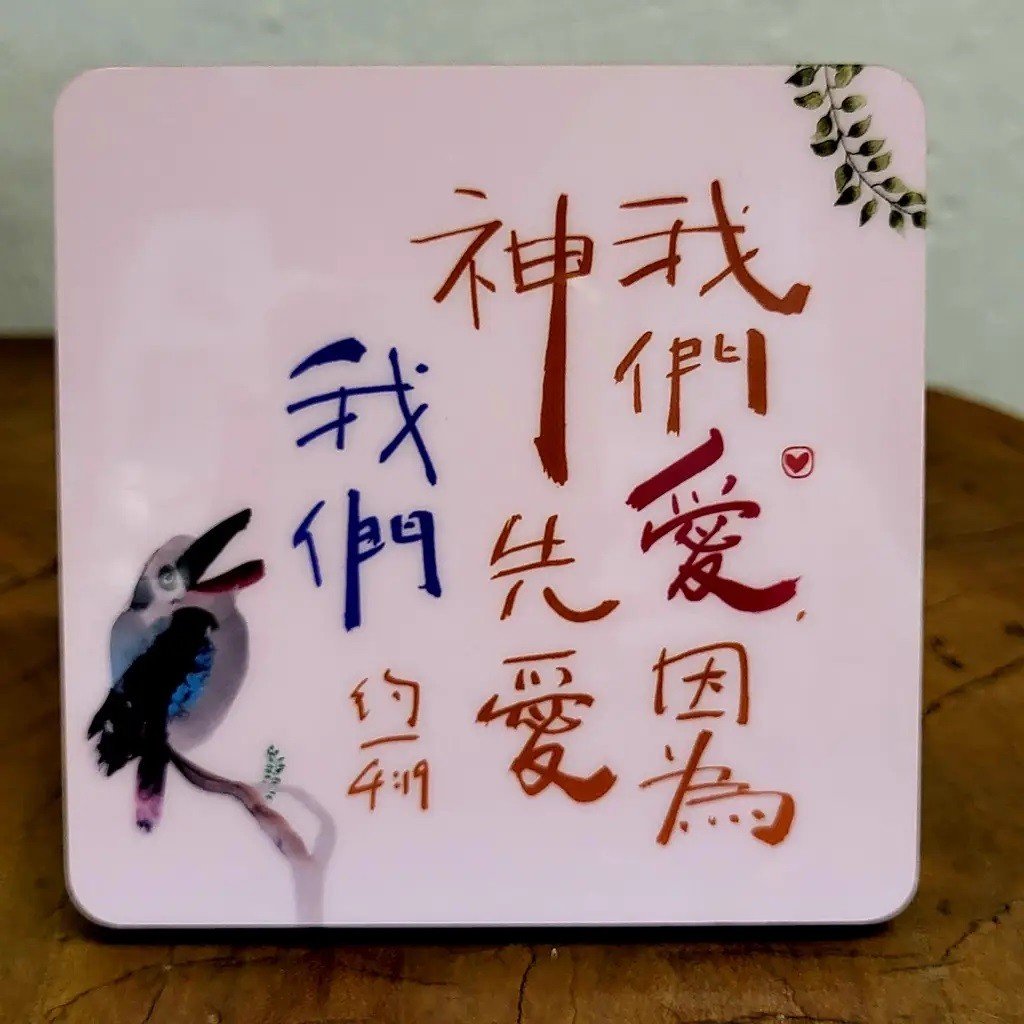 我們愛，因為
神先愛
我們
約一
4:19